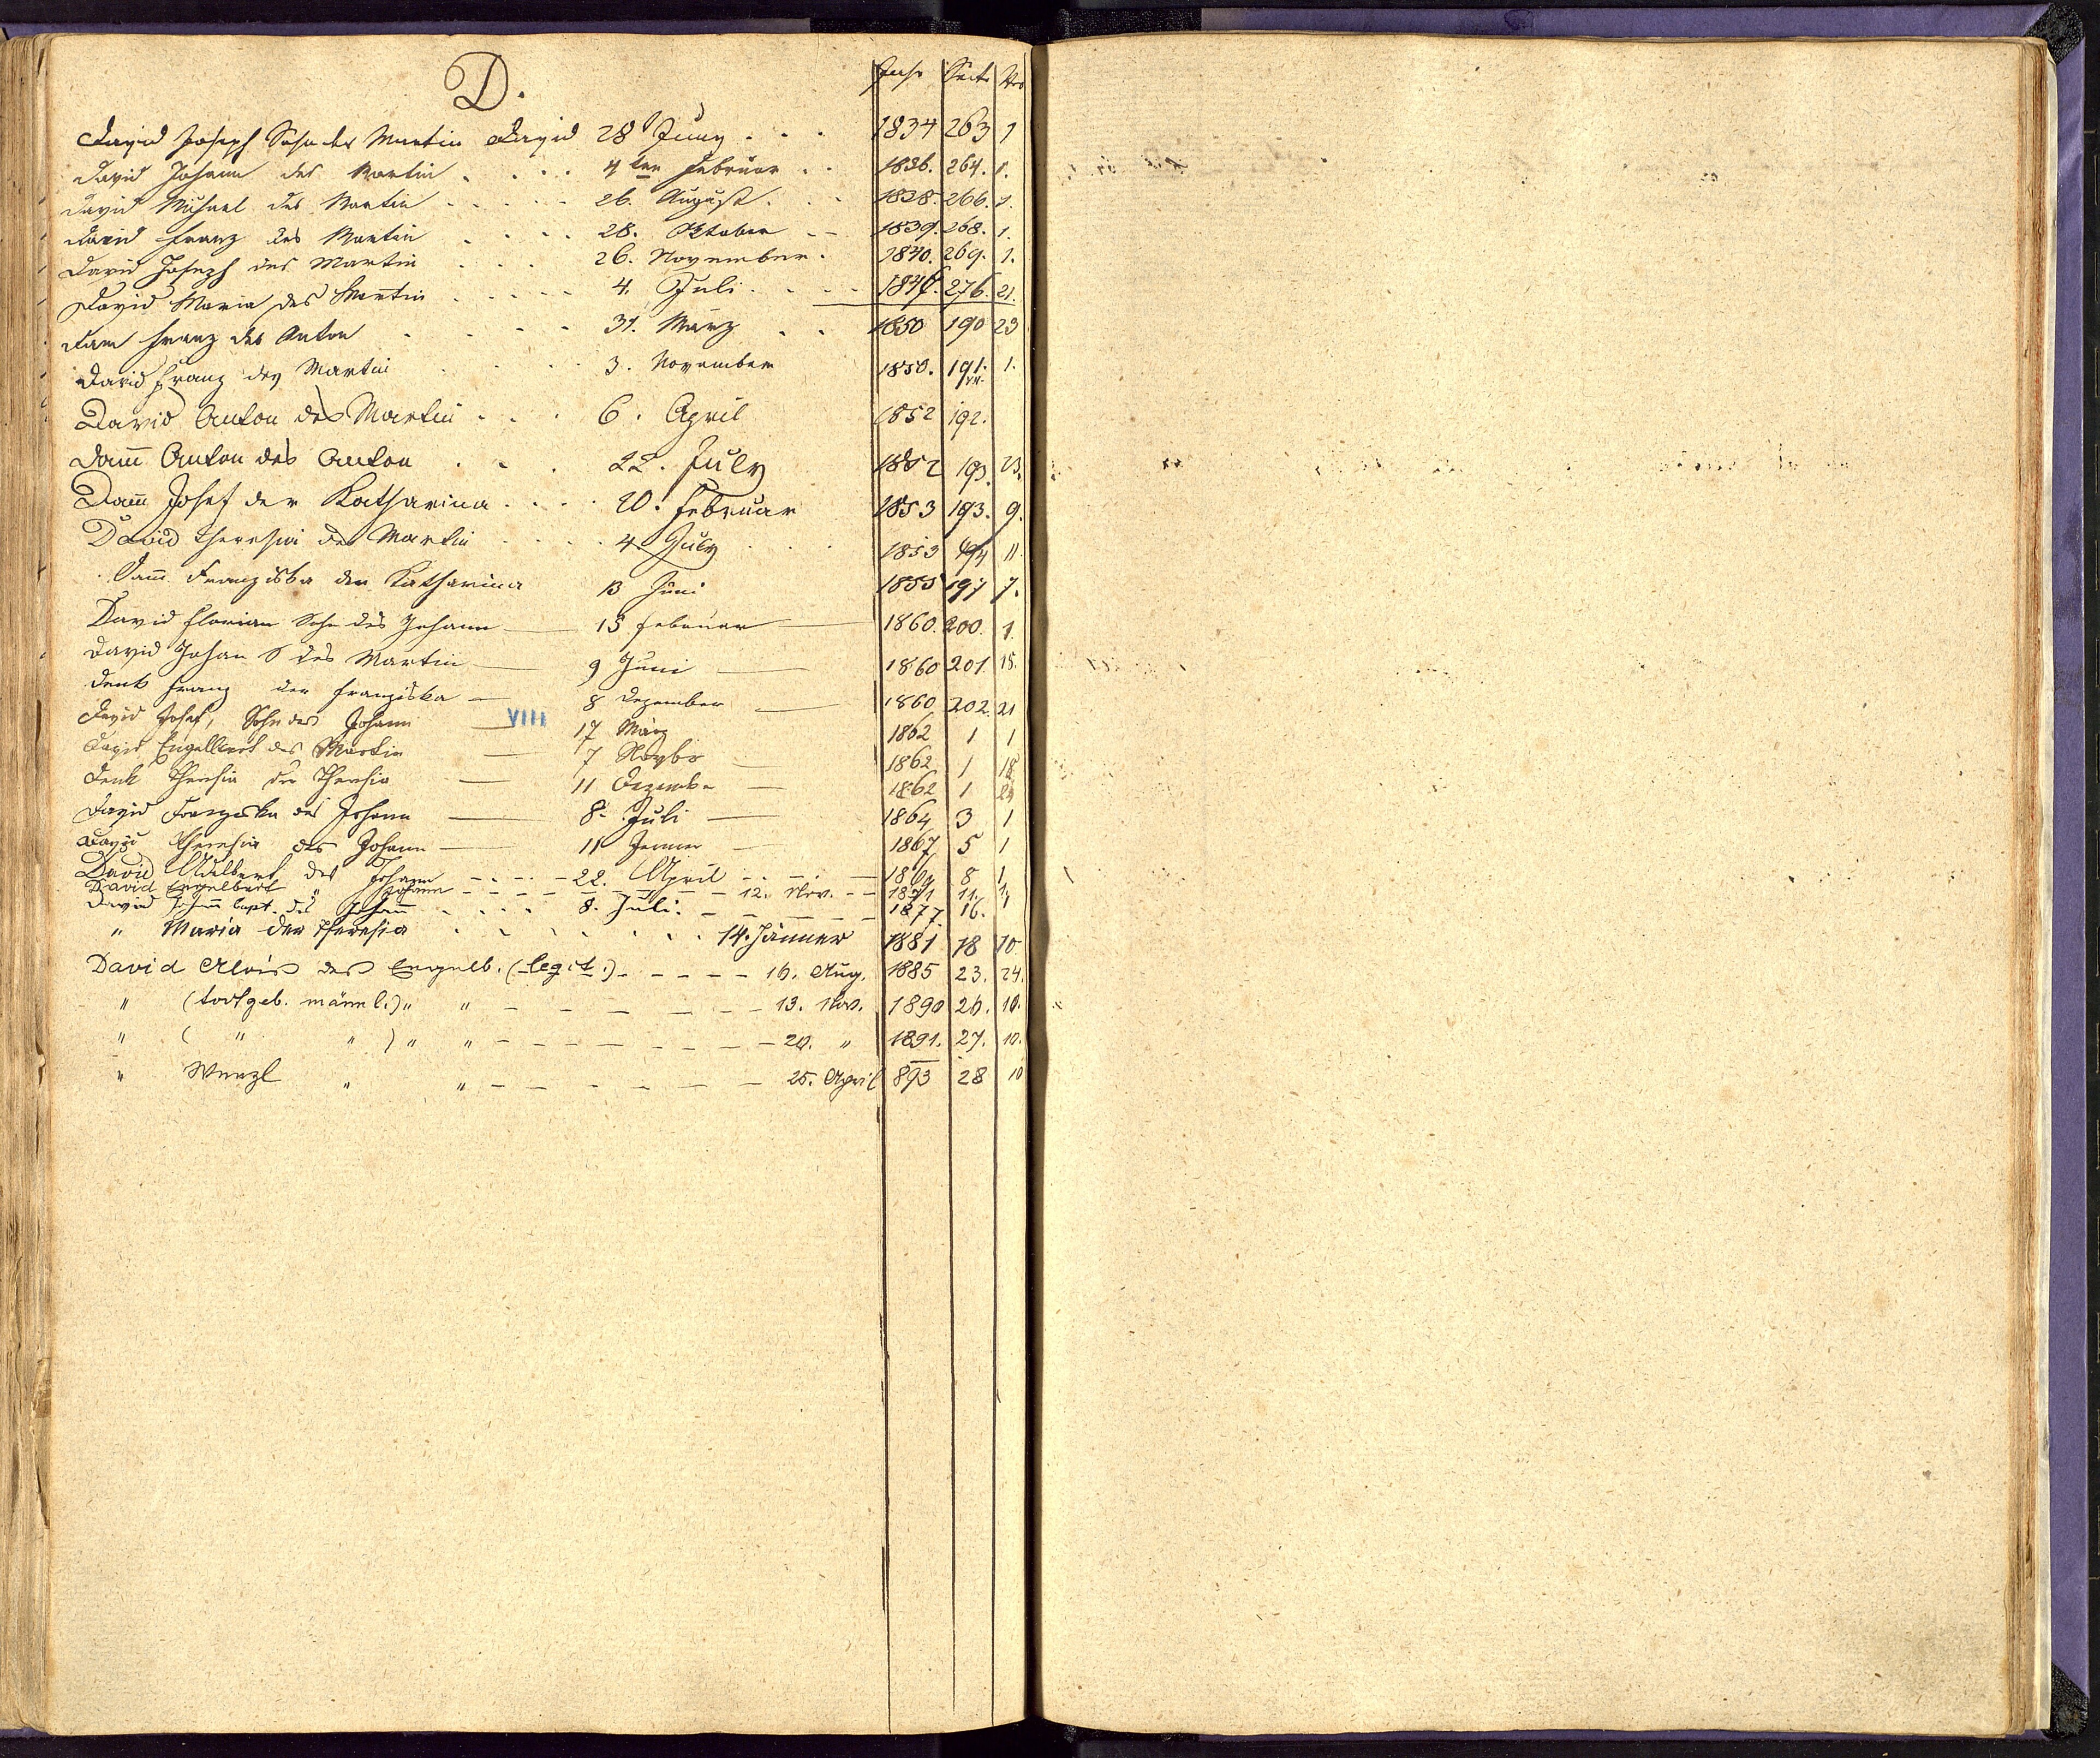 D.
Jahr Seite Nro
David Joseph Sohn des Martin David 28 Juny . . . 1834 263 1
David Johann des Martin . . . . 4ten Februar . . 1836. 264. 1.
David Michael des Martin . . . . . 26. August . . . 1838. 266. 1.
David Franz des Martin . . . . 28. Oktober – – 1839. 268. 1.
David Joseph des Martin . . . 26. November . 1840. 269. 1.
David Maria des Martin . . . . . 4. Juli . . . . 1846. 276. 21.
Dam Franz des Anton . . . . 31. März . . 1850 190 23
David Franz des Martin . . . . 3. November 1850. 191. 1.
VII.
David Anton des Martin . . . 6. April 1852 192.
Dam̅ Anton des Anton . . . 22. July 1852 193. 23.
Dam̅ Josef der Katharina . . . . 20. Februar 1853 193. 9.
David Theresia des Martin . . . . 4. July . . . 1853 194 11.
Dam̅ Franziska der Katharina 13 Juni 1855 197 7.
David Florian Sohn des Johann — 15 Februar — 1860. 200. 1.
David Johan S des Martin — 9 Juni — 1860 201. 15.
Denk Franz der Franziska — 8 Dezember — 1860 202. 21
David Josef, Sohn des Johann — VIII 17 März 1862 1 1
David Engelbert des Martin — 7 Novbr — 1862 1 18
Denk Theresia der Theresia — 11 Dezember — 1862 1 24
David Franziska des Johann — 8. Juli — 1864 3 1
David Theresia des Johann — 11 Jenner — 1867 5 1
David Adalbert des Johann – – – – 22. April – – – 1869 8 1
David Engelbert " Johann – – – – 12. Nov. – – 1871 11. 1.
David Johann bapt. des Johann . . . . 8. Juli. – – – 1877. 16. 1
" Maria der Theresia . . . . . . . 14. Jänner 1881 18 10
David Alois des Engelb. (legit.) – – – – – 16. Aug. 1885 23. 24.
" (todtgeb. männl.) " " – – – – – – 13. Nov. 1890 26. 10.
" ( " " ) " " – – – – – – – – 20. " 1891. 27. 10.
" Wenzl " " – – – – – – – 25. April 893 28 10